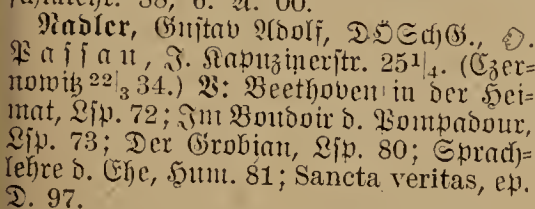 Nadler, Gustav Adolf, DÖSchG.,
Passau, J. Kapuzinerstr. 25¹/₄. (Czer-
nowitz ²²/₃ 34.) V: Beethoven in der Hei-
mat, Lsp. 72; Im Boudoir d. Pompadour,
Lsp. 73; Der Grobian, Lsp. 80; Sprach-
lehre d. Ehe, Hum. 81; Sancta veritas, ep.
D. 97.